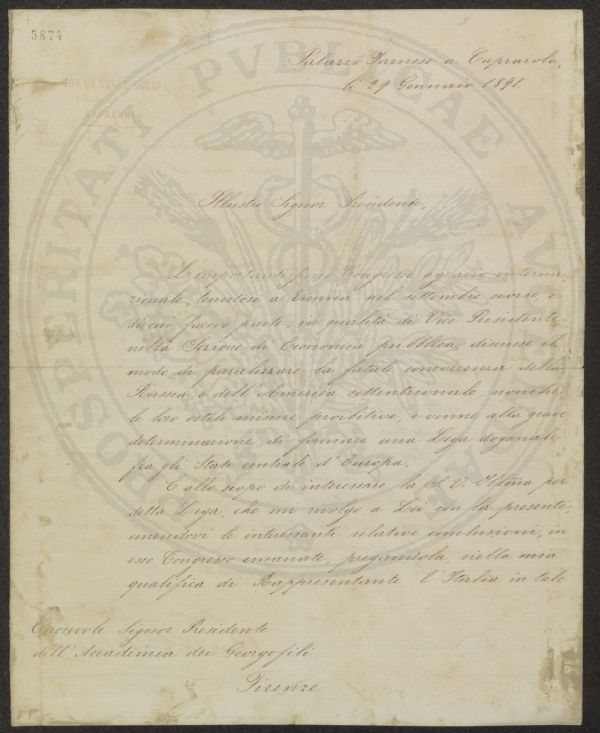 5874
PROSPERITATI PUBLICAE AUGENDAE
Palazzo Farnese a Caprarola,
li 29 Gennaio 1891.
Illustre Signor Presidente,
L'importantissimo Congresso agrario interna-
zionale, tenutosi a Vienna nel settembre scorso, e
di cui facevo parte, in qualità di Vice Presidente
nella Sezione di Economia pubblica, discusse il
modo di paralizzare la fatale concorrenza della
Russia e dell'America settentrionale, nonchè
le loro ostili misure proibitive, e venne alla grave
determinazione di formare una Lega doganale
fra gli Stati centrali d'Europa.
E allo scopo di interessare la S. V. Illma per
detta Lega, che mi rivolgo a Lei con la presente,
unendovi le interessanti relative conclusioni, in
esso Congresso emanate, pregandola, nella mia
qualifica di Rappresentante l'Italia in tale
Onorevole Signor Presidente
dell'Accademia dei Georgofili
Firenze